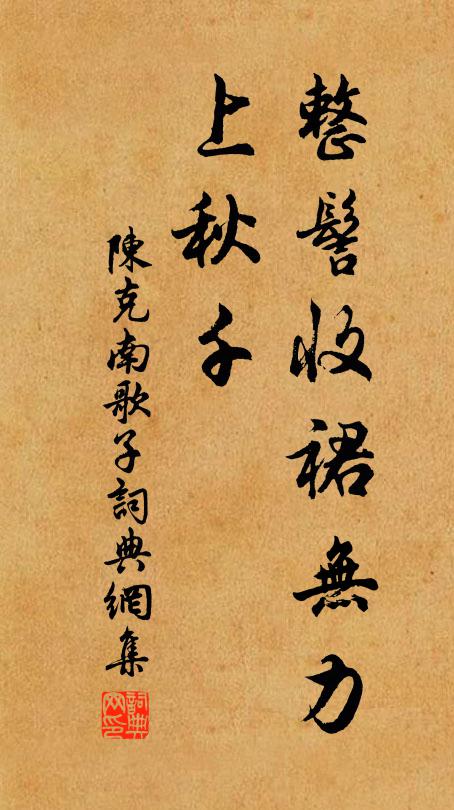 整髻收裙無力
上秋千
陳克南歌子詞典網集
詞典網印